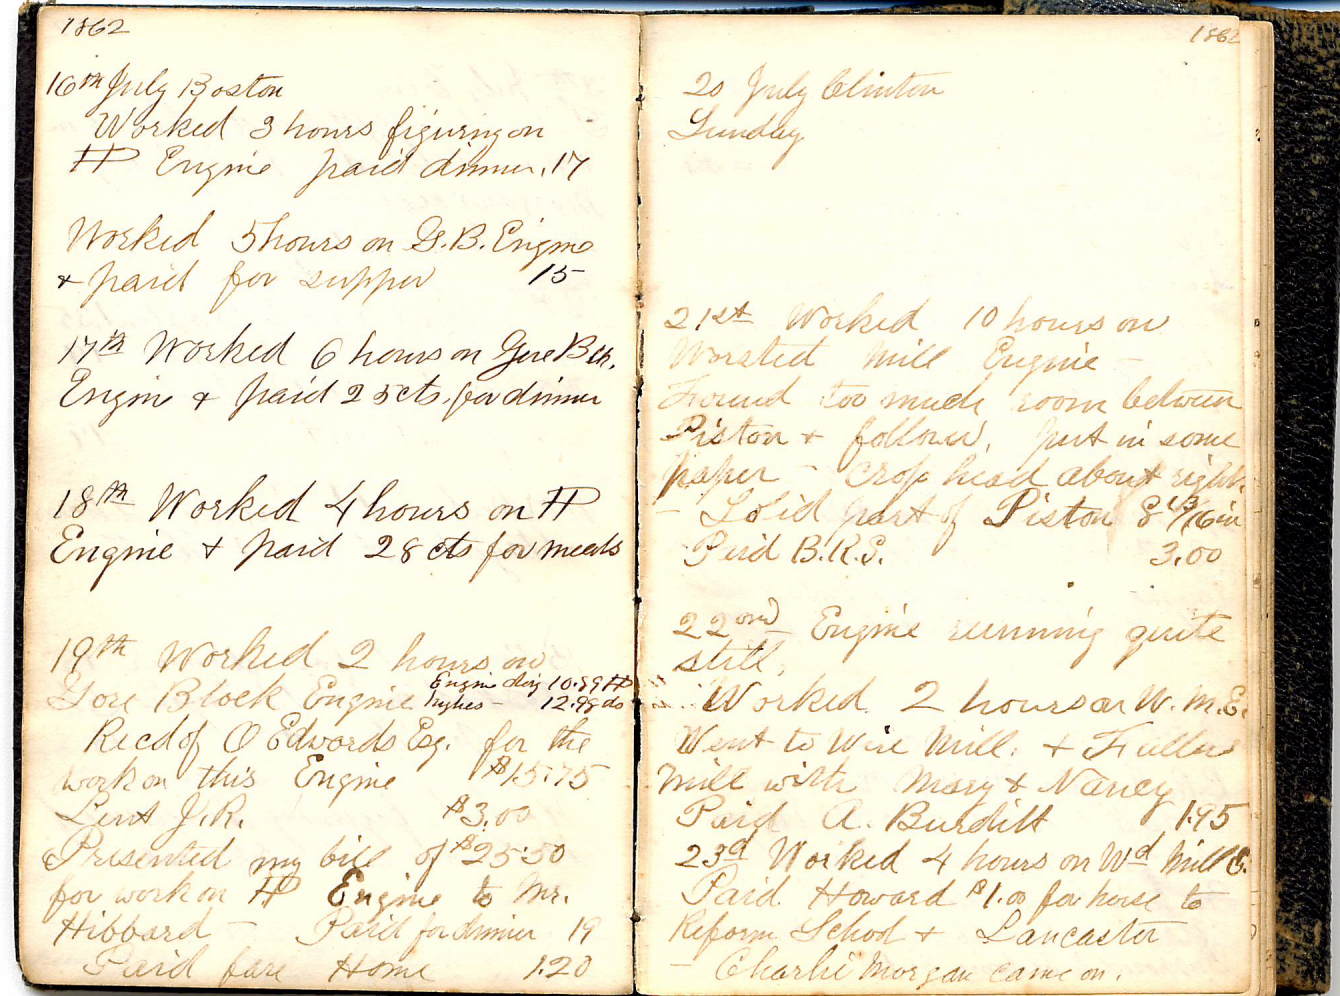 1862
16th July Boston
Worked 3 hours figuring on
HP Engine paid dinner .17
Worked 5 hours on G.B. Engine
& paid for supper 15
17th Worked 6 hours on Gore Blk.
Engine & paid 25 cts. for dinner
18th Worked 4 hours on HP
Engine & paid 28 cts for meals
19th Worked 2 hours on
Gore Block Engine
Engine devg 10.89 HP
highes - 12.98 do
Recd of O Edwards Esq. for the
work on this Engine $15.75
Lent J.R. $3.00
Presented my bill of $25.50
for work on HP Engine to Mr.
Hibbard - Paid for dinner 19
Paid fare Home 1.20
1862
20 July Clinton
Sunday
21st Worked 10 hours on
Worsted Mill Engine -
Found too much room between
Piston & follower, put in some
paper - Crop head about right
- Solid part of Piston 8 13/16 in
Paid B.R.S. 3.00
22ond Engine running quite
still.
Worked 2 hours on W.M.E.
Went to Wire Mill. & Fuller
Mill with Mary & Nancy
Paid A. Burditt 1.95
23d Worked 4 hours on Wd Mill E.
Paid Howard $1.00 for horse to
Reform School & Lancaster
- Charlie Morgan came on.